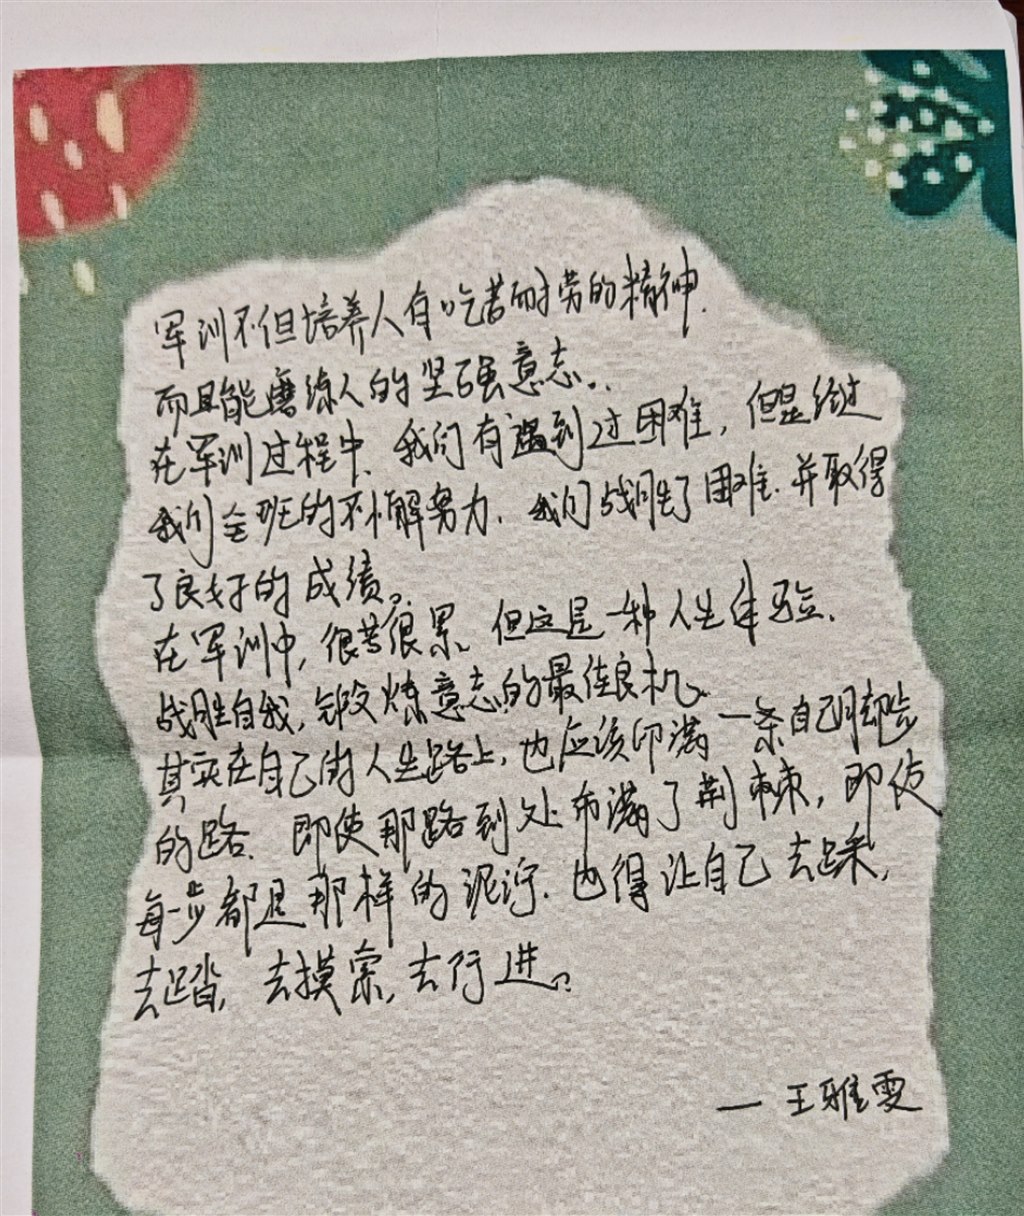 军训不但培养人有吃苦耐劳的精神.
而且能磨练人的坚强意志。.
在军训过程中、我们有遇到过困难，但是经过
我们全班的不懈努力、我们战胜了困难、并取得
了良好的成绩。
在军训中，很苦很累。但这是一种人生体验、
战胜自我，锻炼意志的最佳良机。
其实在自己的人生路上，也应该印满一条自己脚步
的路、即使那路到处布满了荆棘，即使
每一步都是那样的泥泞、也得让自己去踩，
去踏，去摸索，去行进。
— 王雅雯